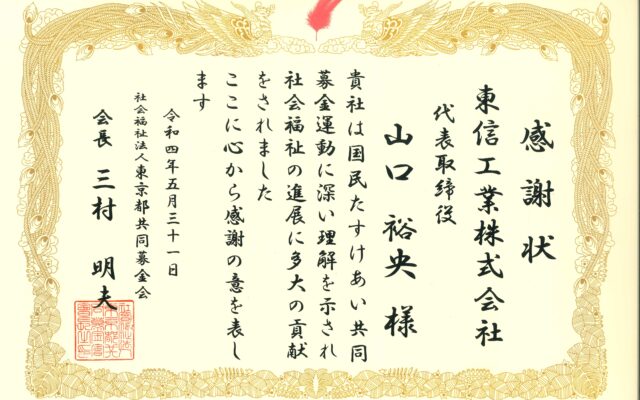 感謝状
東信工業株式会社
代表取締役
山口裕央様
貴社は国民たすけあい共同
募金運動に深い理解を示され
社会福祉の進展に多大の貢献
をされました
ここに心から感謝の意を表し
ます
令和四年五月三十一日
社会福祉法人東京都共同募金会
会長 三村 明夫